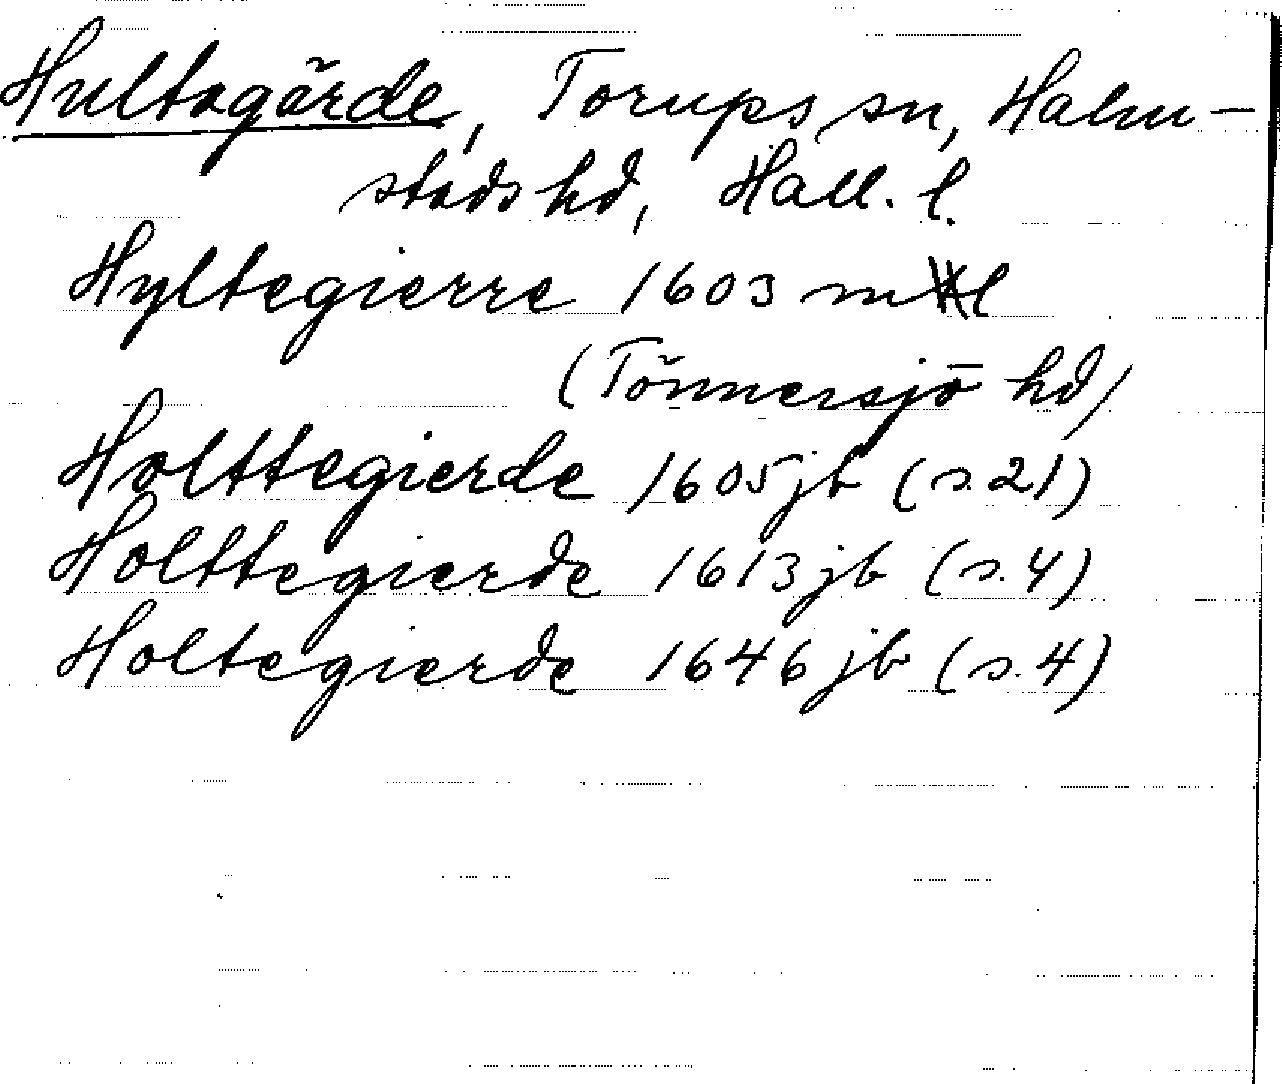 Hultagärde, Torups sn, Halm-
stads hd, Hall. l.
Hyltegierre 1603 ml
(Tönnersjö hd)
Holttegierde 1605 jb (s. 21)
Holttegierde 1613 jb (s. 4)
Holtegierde 1646 jb (s. 4)